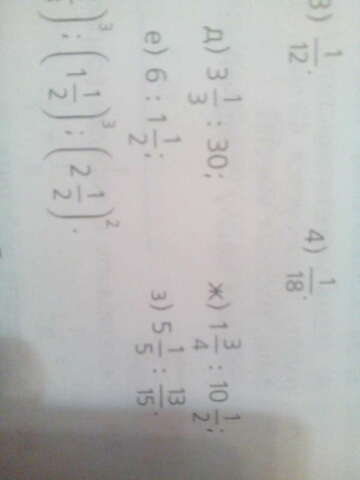 3) 1/12. 4) 1/18.
д) 3 1/3 : 30; ж) 1 3/4 : 10 1/2;
е) 6 : 1 1/2; з) 5 1/5 : 13/15.
)³; (1 1/2)³; (2 1/2)².